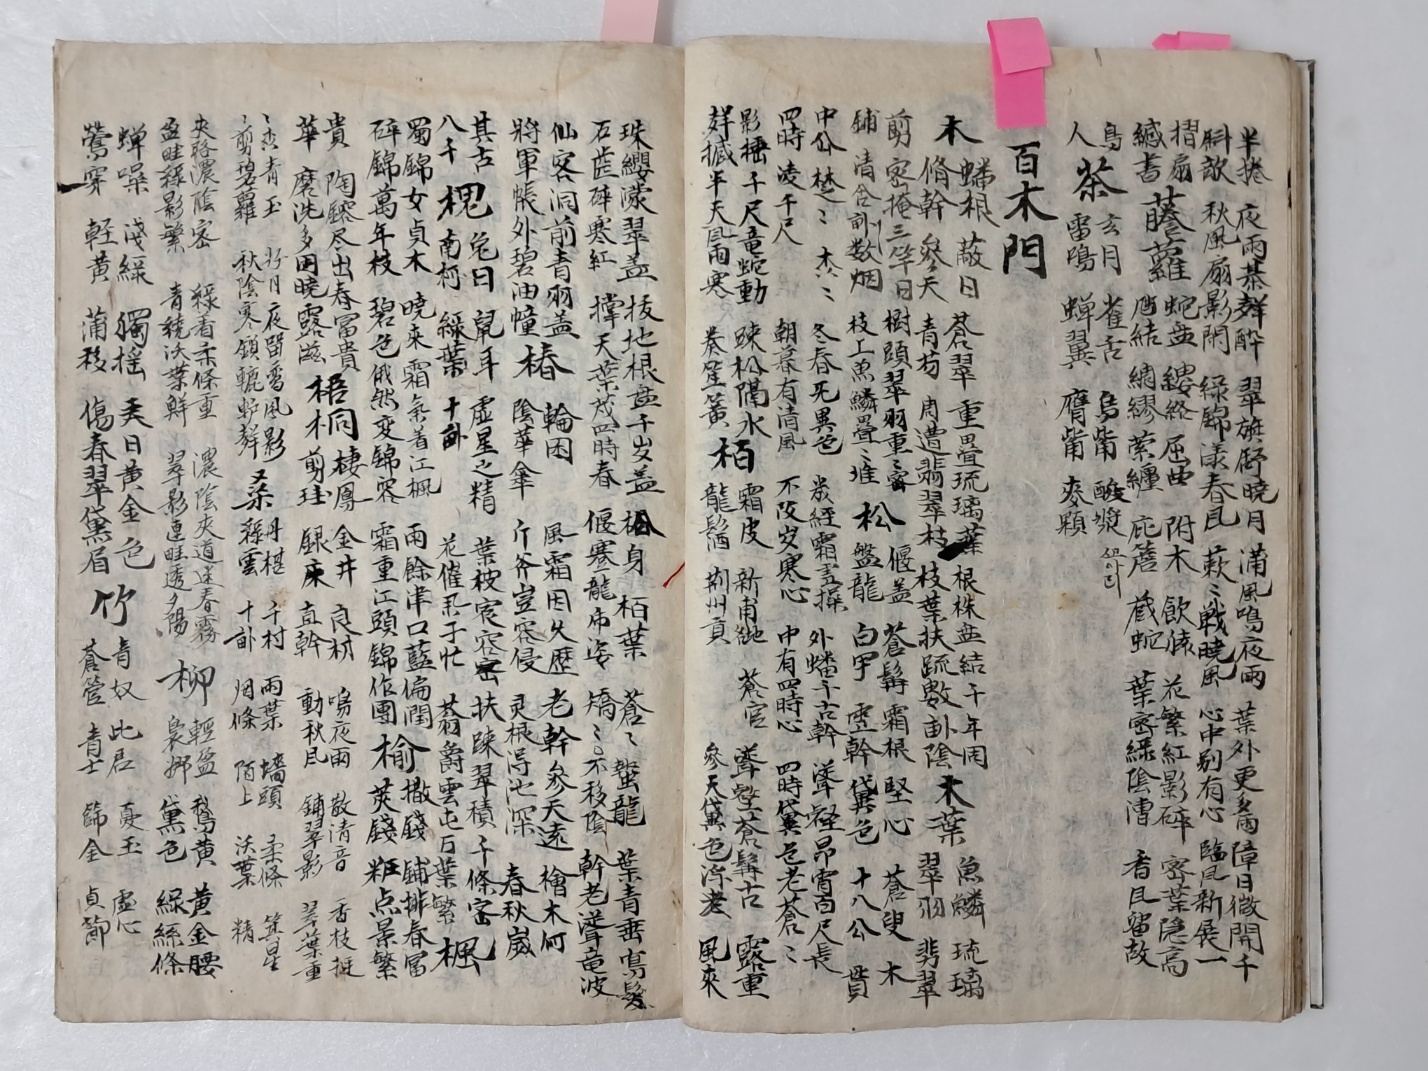 半捲 夜雨棊聲醉 翠旗舒曉月 滿風鳴夜雨 葉外更多雨障日微開千
斜欹 秋風扇影閑 綠錦漾春風 蔌〻戰曉風 心中別有心 臨風新展一
摺扇
緘書 藤蘿 蛇盤 纓絡 屈曲 附木 飲猿 花繁紅影碎 密葉隱高
虺結 綢繆 縈纏 庇簷 藏蛇 葉密綠陰濃 香風留故
鳥
人 茶 玄月 雀舌 烏觜 酸漿
雷鳴 蟬翼 鷹觜 麥顆
百木門
木 蟠根 蔽日 蒼翠 重疊琉璃葉 根株盤結千年周 木葉 魚鱗 琉璃
脩幹 參天 青芴 周遭翡翠枝 枝葉扶疏數畝陰 翠羽 翡翠
剪 密掩三竿日 樹頭翠羽重〻密 松 偃盖 蒼髯 霜根 堅心 蒼叟 木
鋪 清含數烟 枝上魚鱗疊〻堆 盤龍 白 虛幹 黛色 十八公 貫
中公 楚〻 杰〻 冬春无異色 歲經霜雪操 外蟠千古幹 聳壑昂霄百尺長
四時 凌千尺 朝暮有清風 不改歲寒心 中有四時心 四時黛色老蒼〻
影捶千尺竜蛇動 疎松隔水 柏 霜皮 新甫 蒼官 聳壑蒼髯古 露重
聲撼半天風雨寒 奏笙簧 龍髯 荆州貢 參天黛色深 老 風來
珠纓濛翠盖 拔地根盤千歲盖 柏身 柏葉 蒼〻 蟄龍 葉青垂 髮
石齒碎寒紅 撐天葉茂四時春 偃蹇龍 姿 矯〻 不移陰 幹老聳竜波
仙客洞前青羽盖 椿 輪囷 風霜因久歷 老幹參天遠 檜木何
將軍帳外碧油幢 陰華傘 斤斧豈容侵 灵根得地深 春秋歲
其古
八千 槐 兔目 鼠耳 虛星之精 葉梗窓容密 扶疎翠積千條密 楓
南柯 綠葉 十畝 花催君子忙 蒼爵雲屯百葉繁
蜀錦女貞木 曉來霜氣着江楓 雨餘津口藍偏潤 榆 撒錢 鋪排春富
碎錦萬年枝 碧色俄然変錦容 霜重江頭錦作團 莢錢 粧点景繁
貴 陶鎔尽出春富貴 梧桐 棲鳳 金井 良材 鳴夜雨 散清音 香枝挺
華 磨洗多因曉露滋 剪珪 銀床 直幹 動秋風 鋪翠影 翠葉重
〻杰青玉 好月夜留鸞鳳影 桑 丹椹 千村 雨葉 墻頭 柔條 箕星
〻剪碧羅 秋陰寒鎖轆轤聲 綠雲 十畝 烟條 陌上 沃葉 精
夾路濃陰密 綠着柔條重 濃陰夾道迷春霧 柳 輕盈 鵝黄 黄金腰
盈畦綠影繁 青繞沃葉鮮 翠影連畦透夕陽 裊娜 黛色 綠絲條
蟬噪 淺綠 獨摇 天日黄金色 竹 青奴 此君 戛玉 虛心
鶯穿 輕黄 蒲移 傷春翠黛眉 蒼筤 青士 篩金 貞節